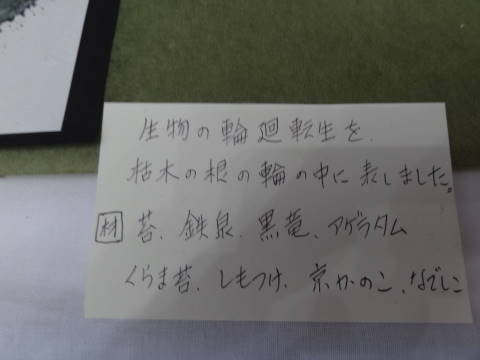 生物の輪廻転生を
枯木の根の輪の中に表しました。
材 苔、鉄泉、黒竜、アゲラタム
くらま苔、しもつけ、京かのこ、なでしこ